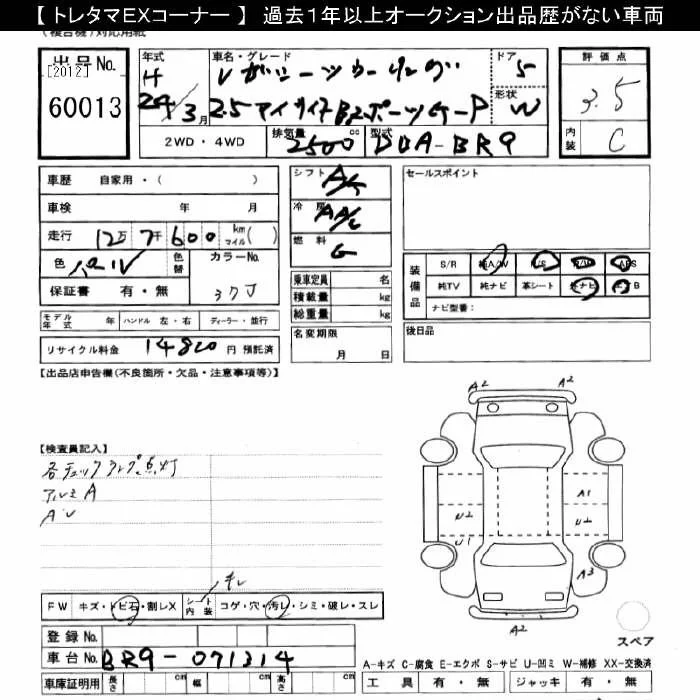 【 トレタマEXコーナー 】 過去1年以上オークション出品歴がない車両
(複合機)対応用紙
出品No.
[2012]
60013
年式
H
24/3月
車名・グレード
レガシーツーリング
2.5アイサイトBスポーツG-P
ドア
5
形状
W
評価点
3.5
内装
C
2WD・4WD
排気量 2500 cc
型式 DBA-BR9
車歴 自家用・( )
車検 年 月
走行 12万7千600 km マイル( )
色 パール
色替
カラーNo.
37J
保証書 有・無
シフト A/T
冷房 AA/C
燃料 G
乗車定員 名
積載量 kg
総重量 kg
名変期限
月 日
セールスポイント
装備品
S/R 純A/W P/S P/W ABS
純TV 純ナビ 革シート 社ナビ エアB
ナビ型番:
後日品
モデル年式 年 ハンドル 左・右 ディーラー・並行
リサイクル料金 14820 円 預託済
【出品店申告欄(不良箇所・欠品・注意事項等)】
【検査員記入】
各チェックランプ点灯
アルミA
AU
A2 A2
A1
U2 U2
U1
A3
A2
スペア
キレ
FW キズ・トビ石・割レX シート内装 コゲ・穴・汚レ・シミ・破レ・スレ
登録No.
車台No. BR9-071314
車庫証明用 長さ cm 幅 cm 高さ cm
A-キズ C-腐食 E-エクボ S-サビ U-凹ミ W-補修 XX-交換済
工具 有・無 ジャッキ 有・無